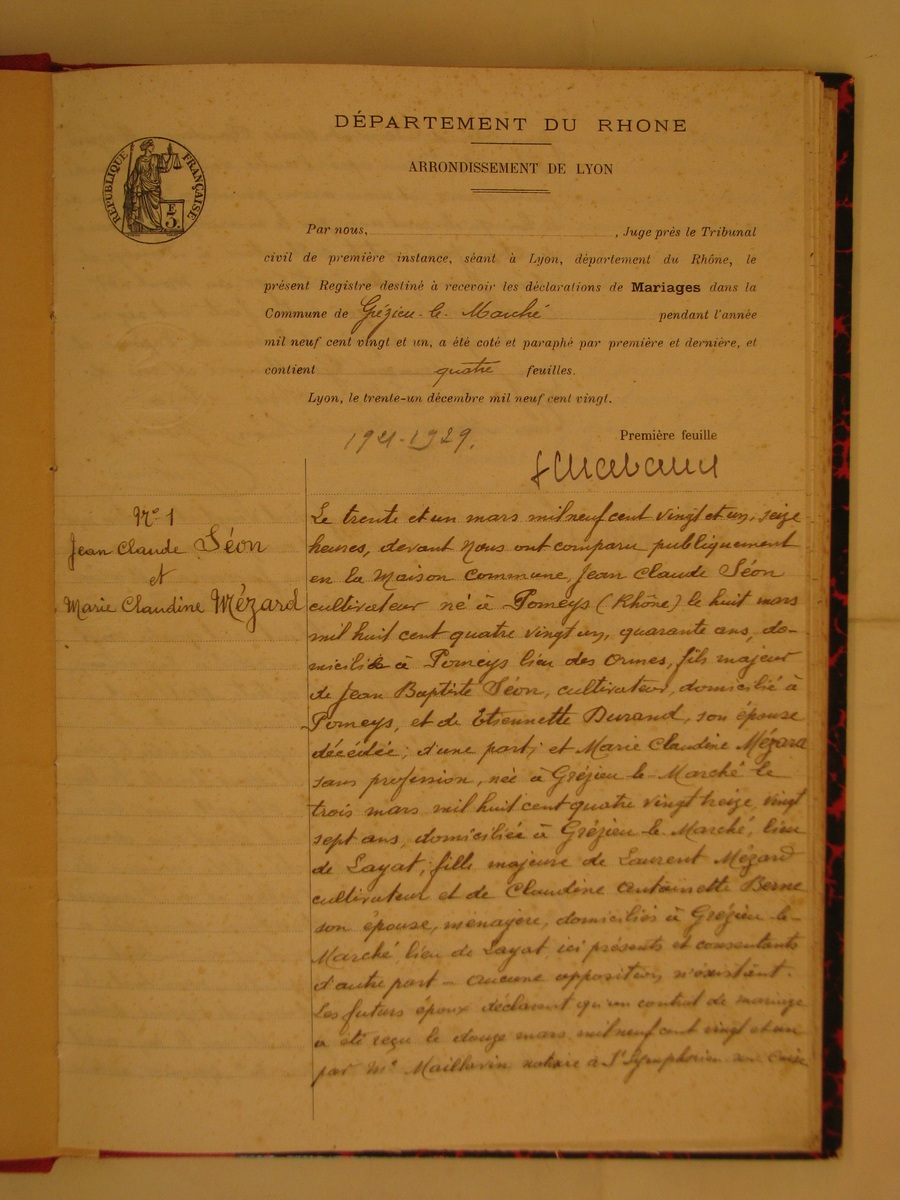 DÉPARTEMENT DU RHONE
ARRONDISSEMENT DE LYON
RÉPUBLIQUE FRANÇAISE
E
3.
Par nous, , Juge près le Tribunal
civil de première instance, séant à Lyon, département du Rhône, le
présent Registre destiné à recevoir les déclarations de Mariages dans la
Commune de Grézieu-le-Marché pendant l'année
mil neuf cent vingt et un, a été coté et paraphé par première et dernière, et
contient quatre feuilles.
Lyon, le trente-un décembre mil neuf cent vingt.
1921-1929.
Première feuille
N° 1
Jean Claude Séon
et
Marie Claudine Mézard
Le trente et un mars mil neuf cent vingt et un, seize
heures, devant Nous ont comparu publiquement
en la Maison Commune, Jean Claude Séon
cultivateur né à Pomeys (Rhône) le huit mars
mil huit cent quatre vingt un, quarante ans, do-
micilié à Pomeys lieu des Ormes, fils majeur
de Jean Baptiste Séon, cultivateur, domicilié à
Pomeys, et de Etiennette Durand, son épouse
décédée; d'une part; et Marie Claudine Mézard
sans profession, née à Grézieu-le-Marché le
trois mars mil huit cent quatre vingt treize, vingt
sept ans, domiciliée à Grézieu-le-Marché, lieu
de Layat, fille majeure de Laurent Mézard
cultivateur et de Claudine Antoinette Berne
son épouse, ménagère, domiciliés à Grézieu-le-
Marché, lieu de Layat ici présents et consentants
d'autre part - aucune opposition n'existant.
Les futurs époux déclarent qu'un contrat de mariage
a été reçu le douze mars mil neuf cent vingt et un
par Me notaire à St Symphorien sur Coise